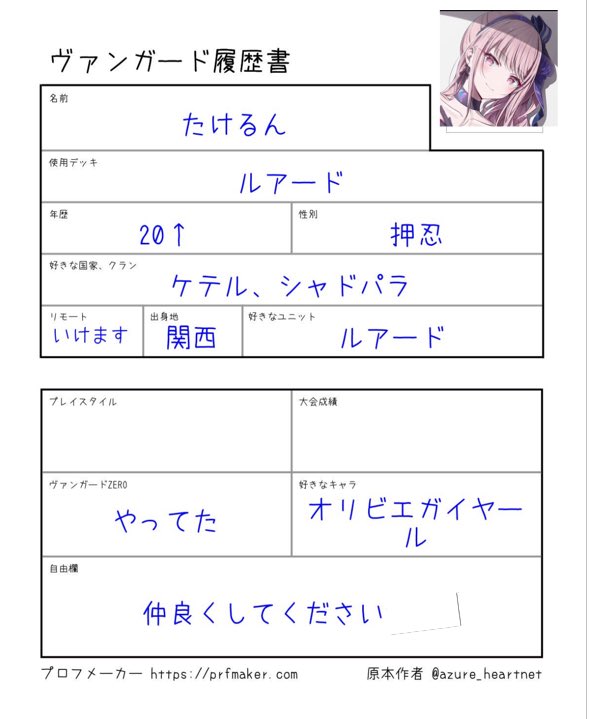 ヴァンガード履歴書
名前
たけるん
使用デッキ
ルアード
年歴
20↑
性別
押忍
好きな国家、クラン
ケテル、シャドパラ
リモート
いけます
出身地
関西
好きなユニット
ルアード
プレイスタイル
大会成績
ヴァンガードZERO
やってた
好きなキャラ
オリビエガイヤー
ル
自由欄
仲良くしてください
プロフメーカー https://prfmaker.com
原本作者 @azure_heartnet